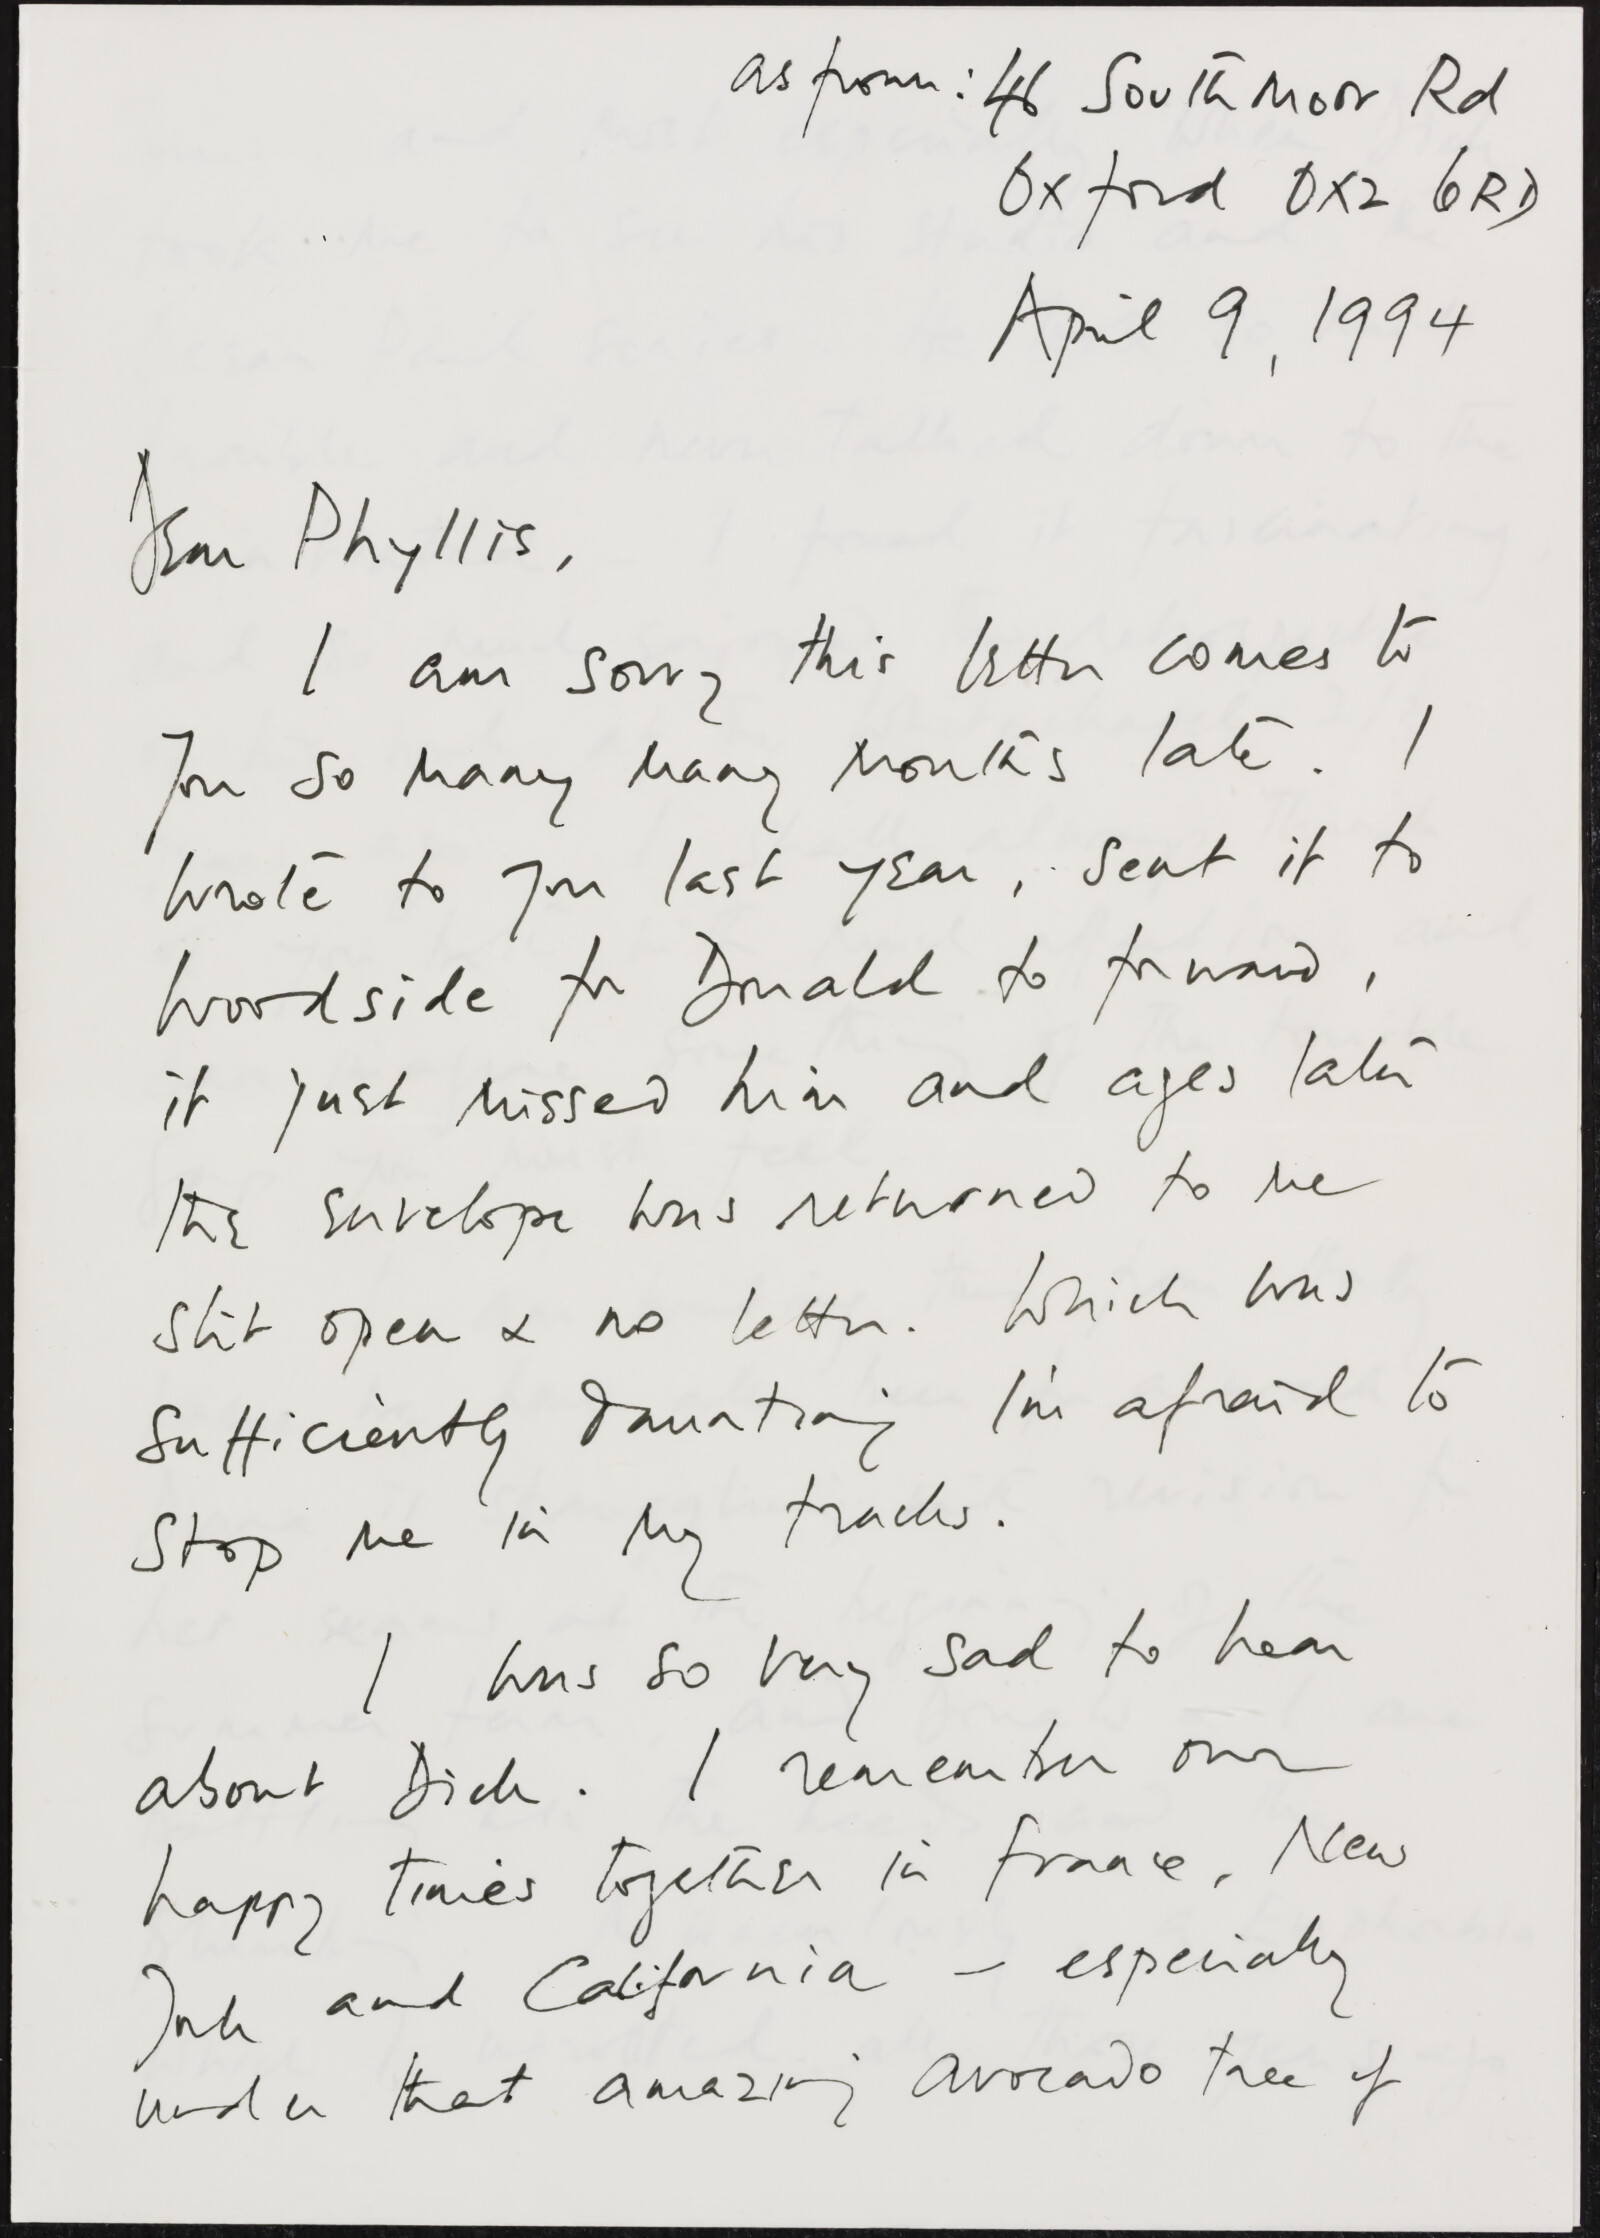 as from: 46 Southmoor Rd
Oxford OX2 6RD
April 9, 1994
Dear Phyllis,
I am sorry this letter comes to
you so many many months late. I
wrote to you last year, sent it to
Woodside for Donald to forward,
it just missed him and ages later
the envelope was returned to me
slit open & no letter. Which was
sufficiently daunting I'm afraid to
stop me in my tracks.
I was so very sad to hear
about Dick. I remember our
happy times together in France, New
York and California – especially
under that amazing avocado tree of